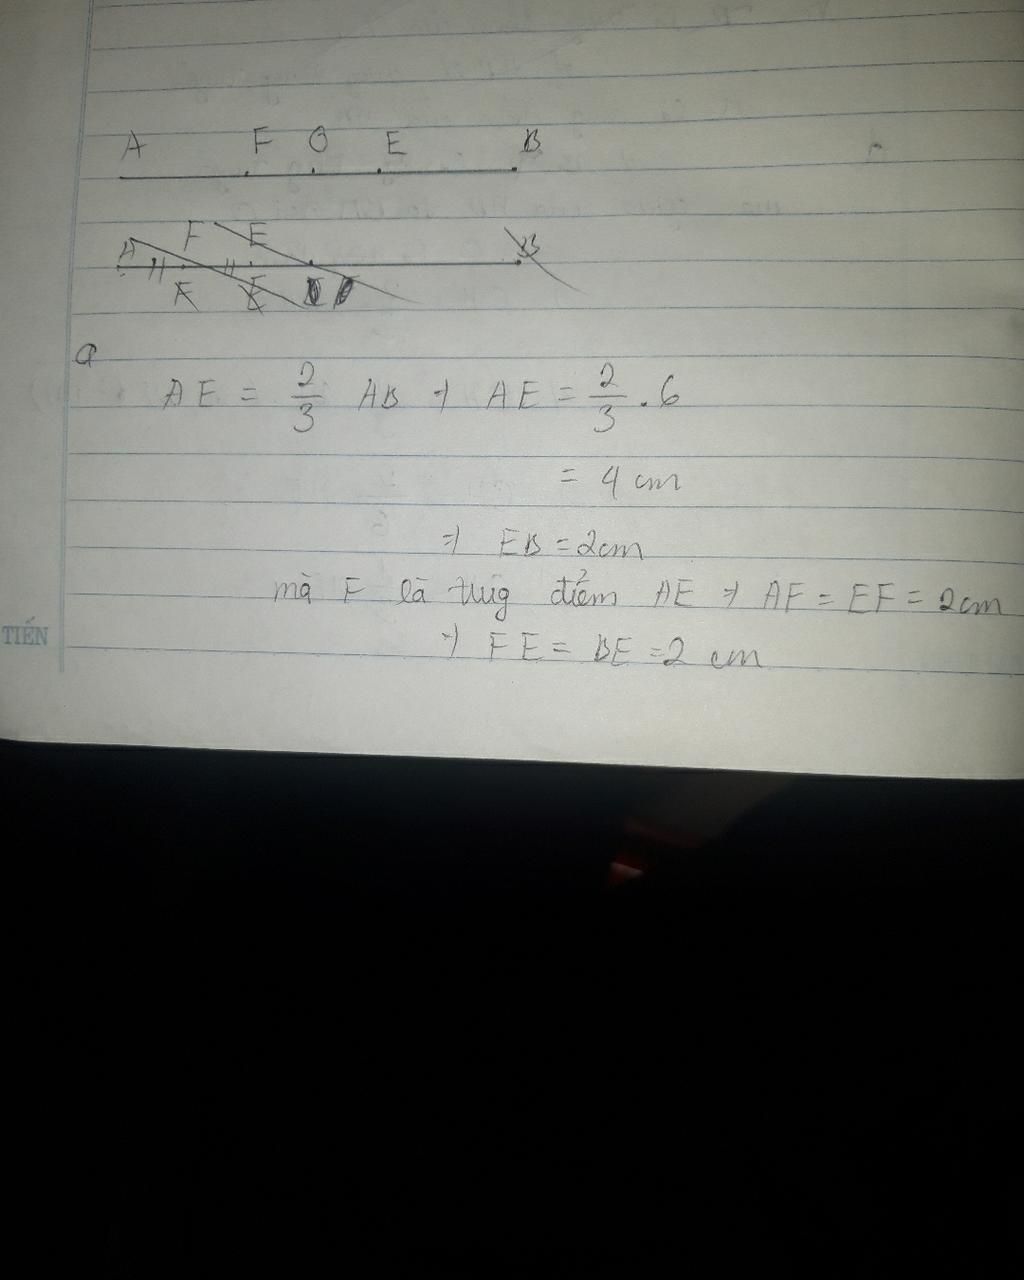 A F O E B
A F E B
a
AE = 2/3 AB ⇒ AE = 2/3 . 6
= 4 cm
⇒ EB = 2cm
mà F là trug điểm AE ⇒ AF = EF = 2cm
⇒ FE = BE = 2 cm
TIẾN